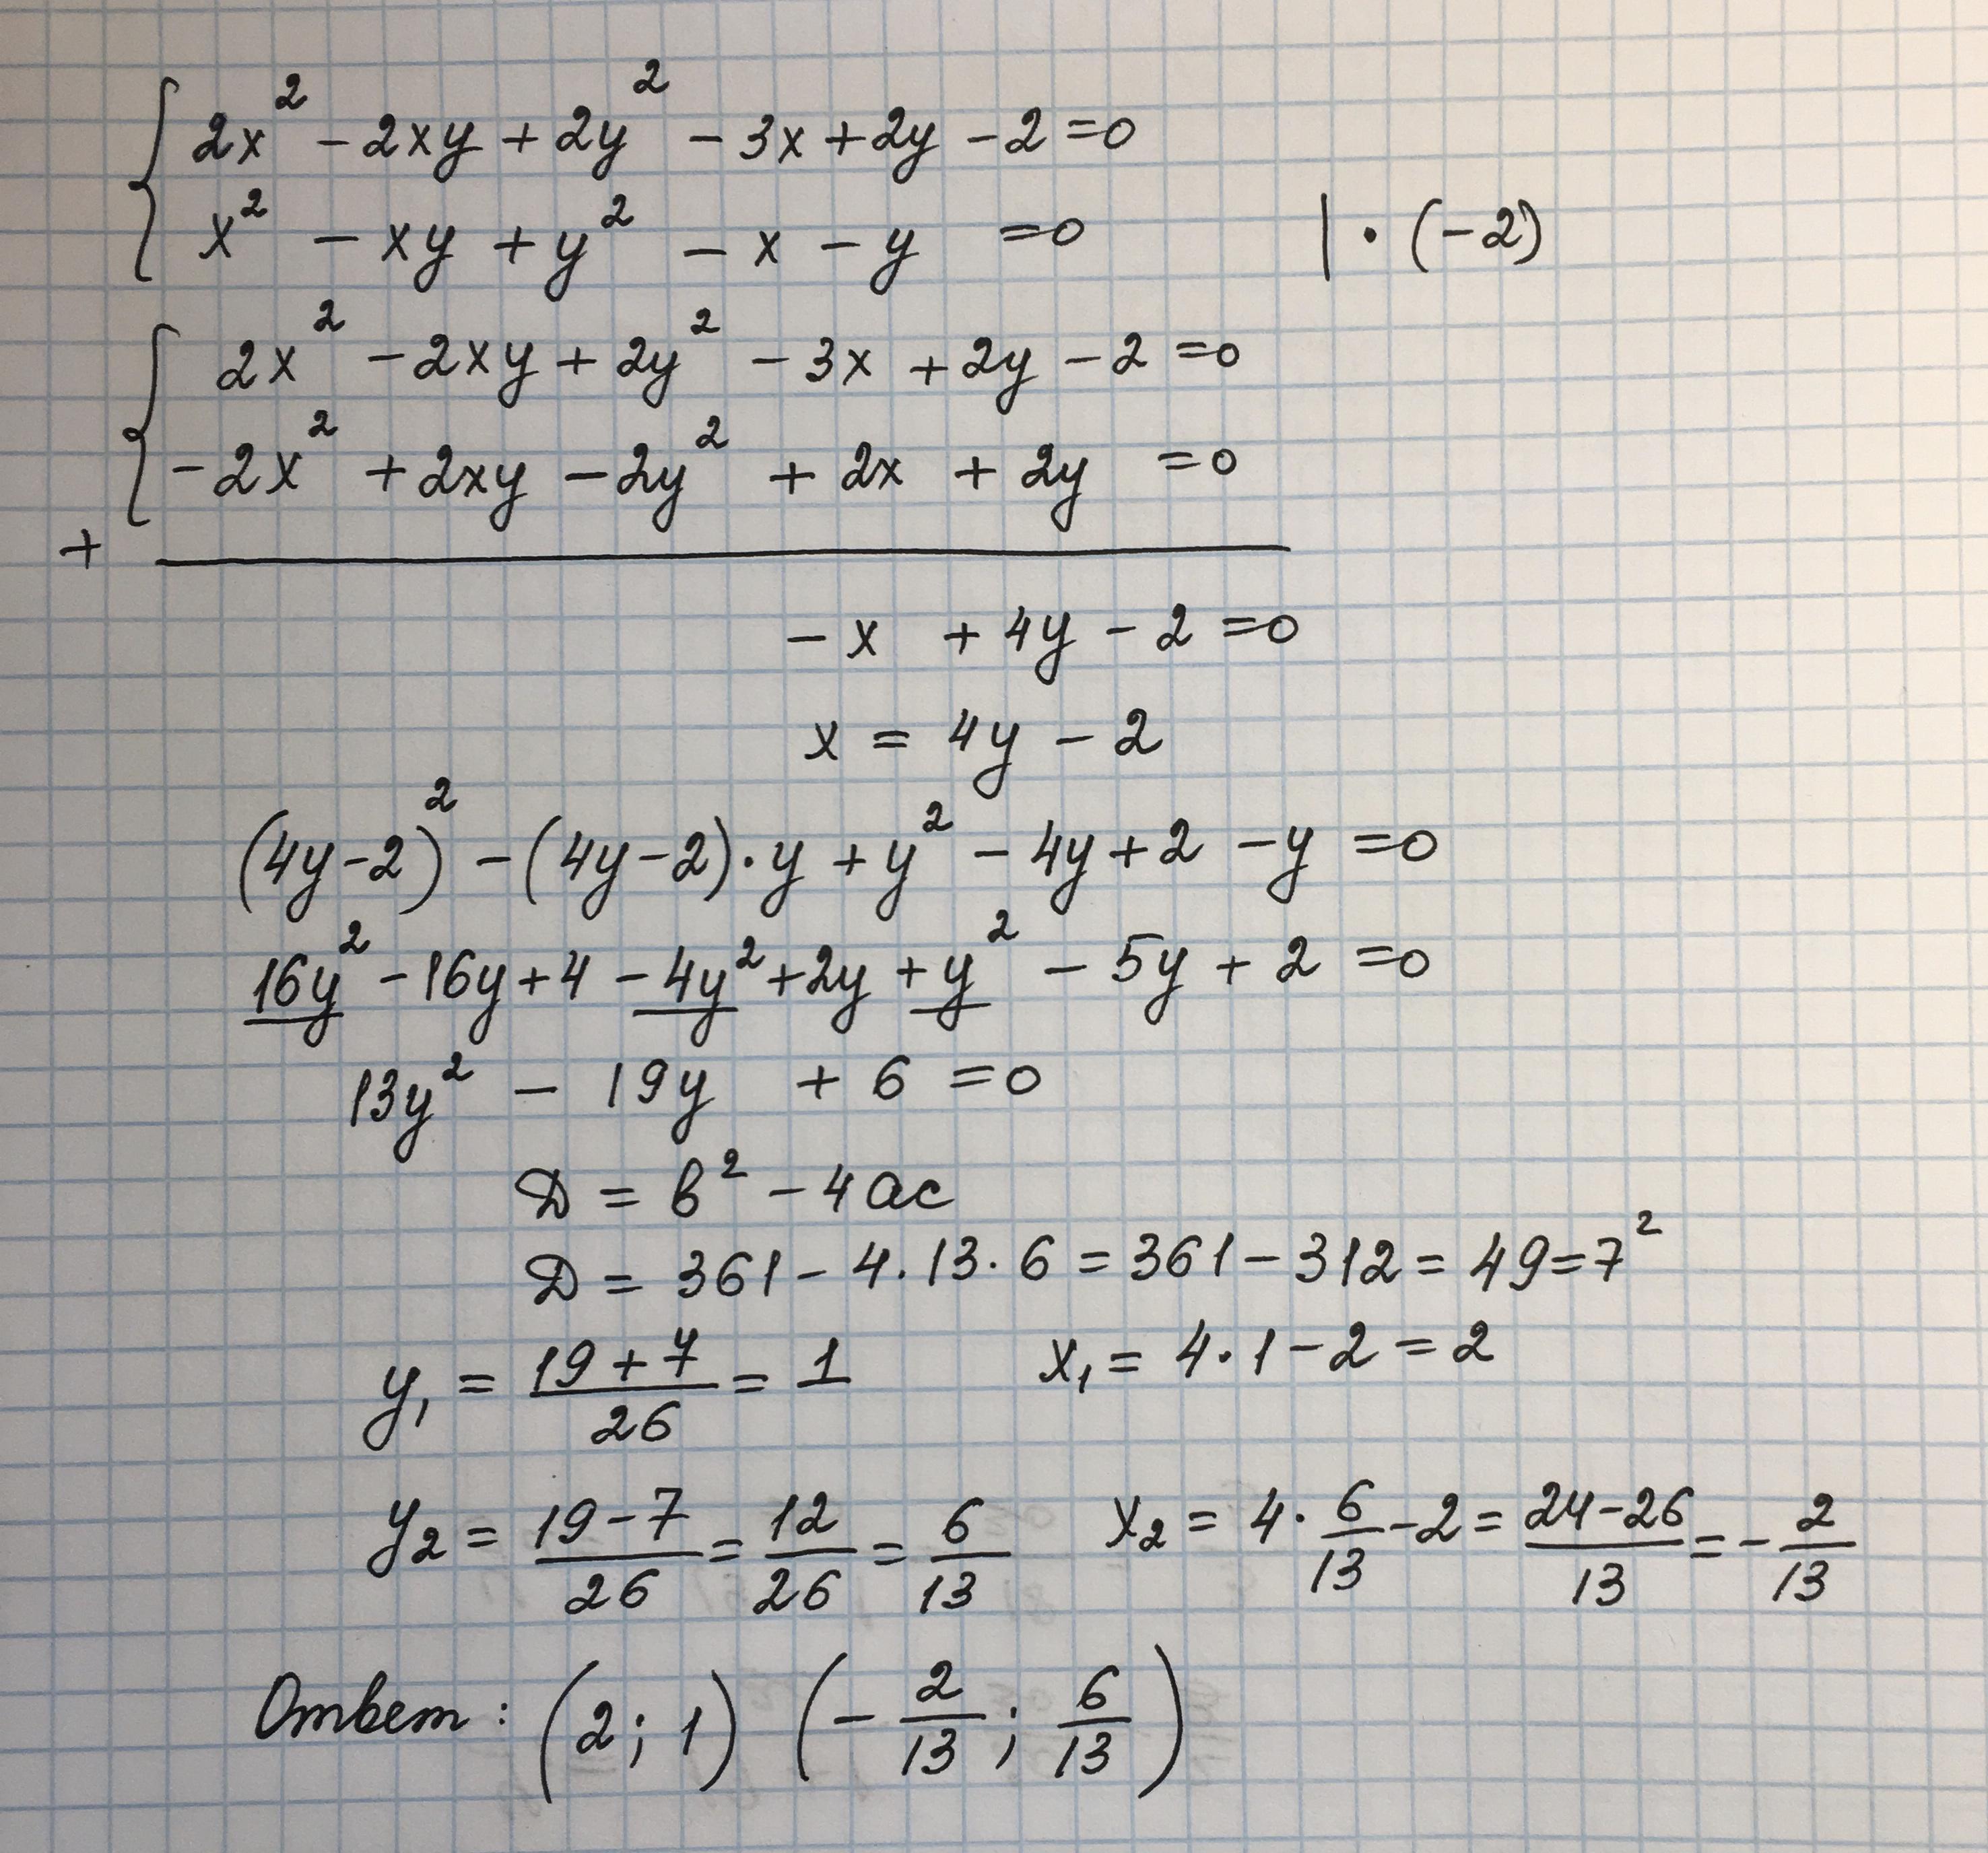 2x² - 2xy + 2y² - 3x + 2y - 2 = 0
x² - xy + y² - x - y = 0 | · (-2)
2x² - 2xy + 2y² - 3x + 2y - 2 = 0
-2x² + 2xy - 2y² + 2x + 2y = 0
+
-x + 4y - 2 = 0
x = 4y - 2
(4y-2)² - (4y-2)·y + y² - 4y + 2 - y = 0
16y² - 16y + 4 - 4y² + 2y + y² - 5y + 2 = 0
13y² - 19y + 6 = 0
D = b² - 4ac
D = 361 - 4·13·6 = 361 - 312 = 49 = 7²
y₁ = (19 + 7)/26 = 1 x₁ = 4·1 - 2 = 2
y₂ = (19 - 7)/26 = 12/26 = 6/13 x₂ = 4·6/13 - 2 = (24 - 26)/13 = -2/13
Ответ: (2; 1) (-2/13; 6/13)